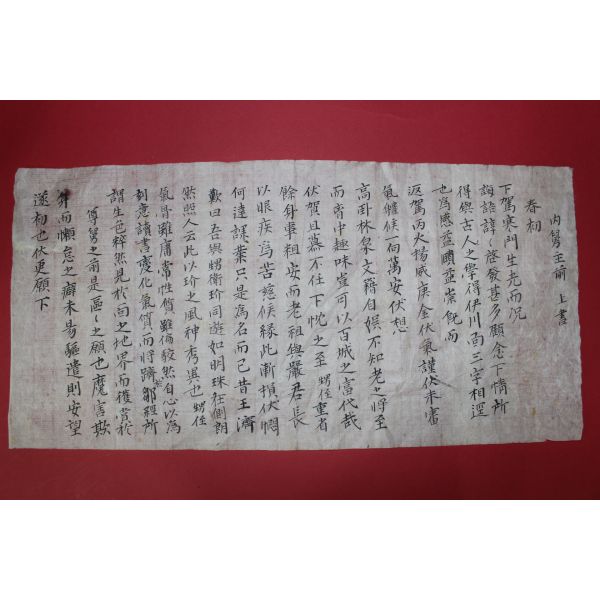 內舅主前 上書
春初
下駕寒門生光而況
誨諭諄〻啓發甚多顧念下情所
得與古人之學得伊川面三字相逕
也爲感益賾益崇旣而
返駕丙火揚威庚金伏氣謹伏未審
氣體候一向萬安伏想
高卧林泉文籍自娛不知老之將至
而育中趣味豈可以百城之富代哉
伏賀且慕不任下忱之至 甥侄重省
餘身事粗安而老祖與嚴君長
以眼疾爲苦慈候緣此漸損伏悶
何達課業只是爲名而已昔王濟
歎曰吾與甥衛玠同遊如明珠在側朗
然照人云此以玠之風神秀異也 甥侄
氣骨雖庸常性質雖偏駁然自心以爲
刻意讀書變化氣質而將躋鄒經所
謂生色粹然見於面之地界而獲賞於
尊舅之前是區〻之願也魔害欺
昇而懶怠之癖未易驅遣則安望
遂初也伏更願下